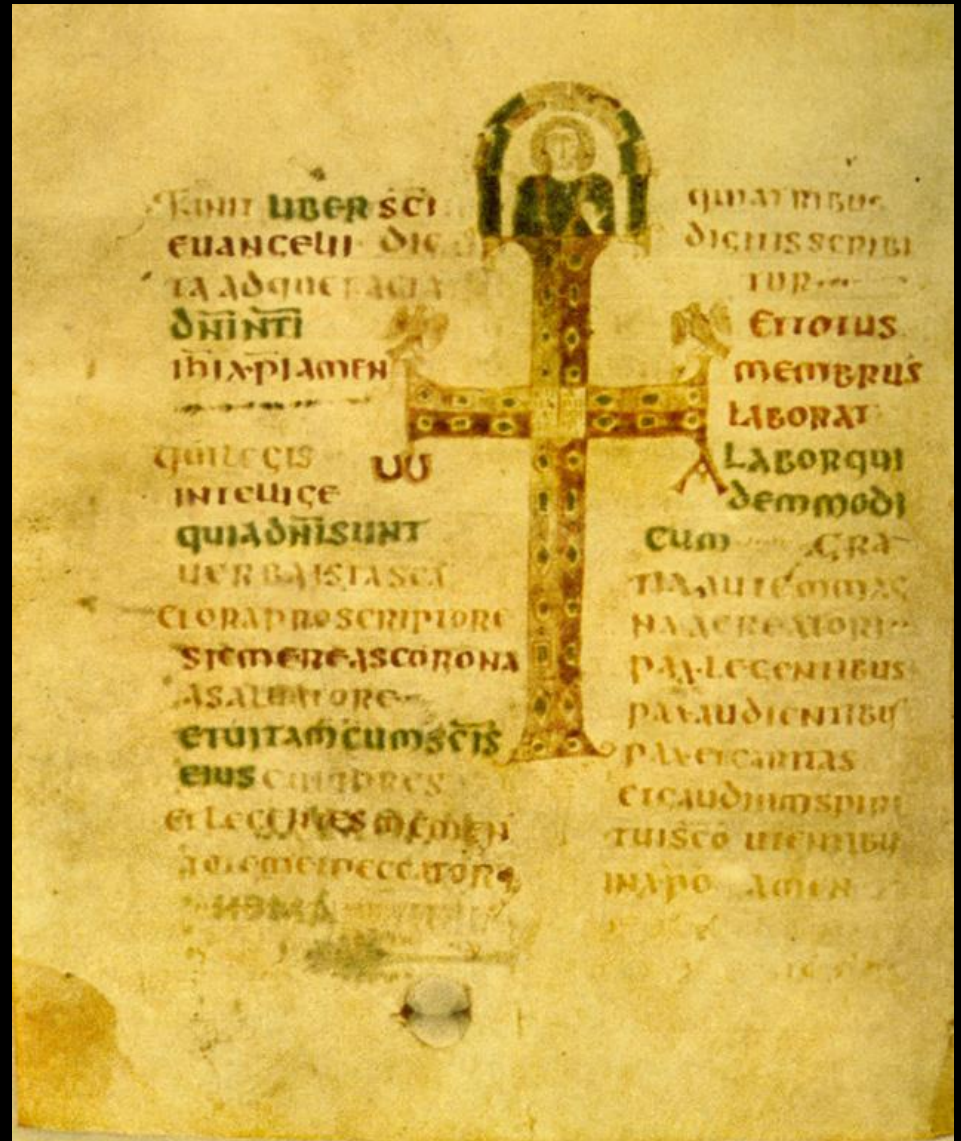 LIBER SC̅I
EUANGELII DIC
TA AD QUE FACTA
DN̅I NT̅I
IH̅I XP̅I AMEN
QUI LEGIS
INTELLIGE
QUIA DN̅I SUNT
UERBA ISTA SC̅A
ET ORA PRO SCRIPTORE
SI EMEREAS CORONA
A SALUATORE
ET UITAM CUM SC̅IS
EIUS
ET LEGENTES MEMEN
PECCATORE
ω
QUIA TRIBUS
DIGITIS SCRIBI
TUR
ET TOTUS
MEMBRUS
LABORAT
A LABOR QUI
DEM MODI
CUM GRA
TIA AUTEM MAG
NA A CREATORI
PAX LEGENTIBUS
PAX AUDIENTIBUS
PAX ET CARITAS
ET GAUDIUM SPIRI
TUI SC̅O UTENTIBUS
IN XPO AMEN